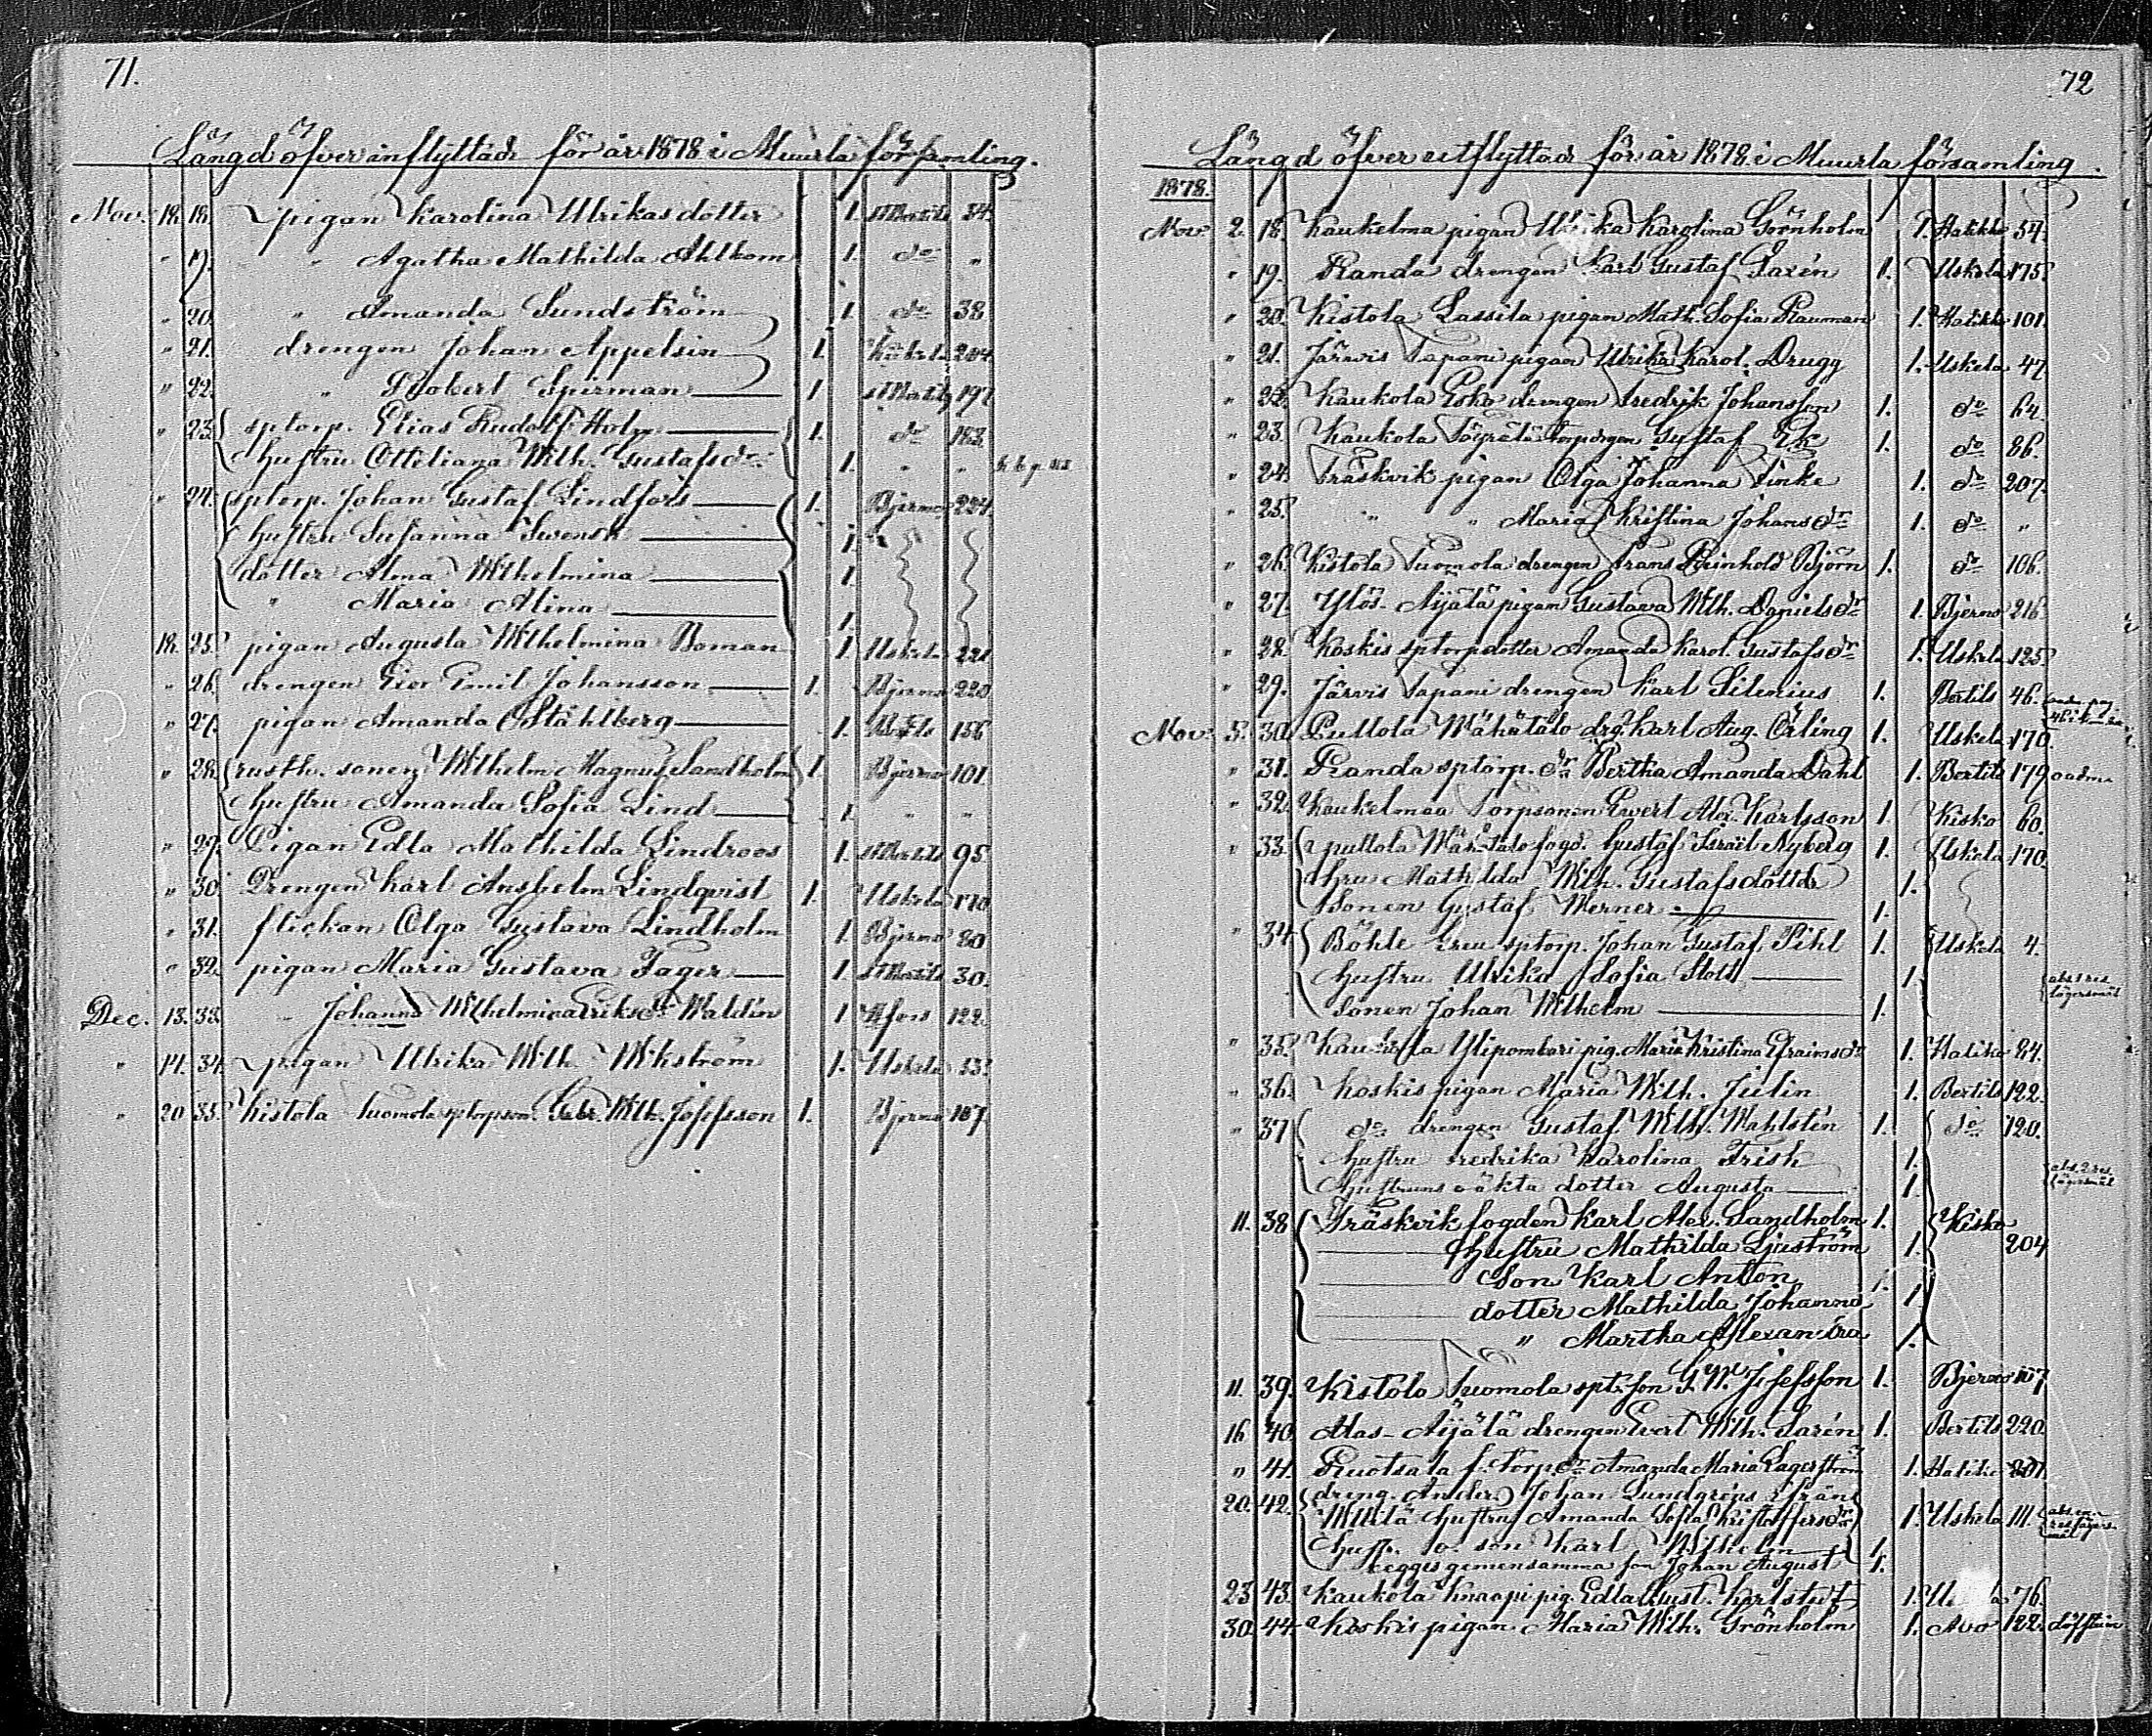 71.
Längd öfver inflyttade för år 1878 i Muurla församling.
Nov. 18. 18. pigan Karolina Ulrikasdotter 1. St Mårtens 34.
" 19. " Agatha Mathilda Ahlbom 1. do "
" 20. " Amanda Sundström 1. do 38
" 21. drengen Johan Appelsin 1. 204
" 22. " Robert Spirman 1 197
" 23. sptorp. Elias Rudolf Holm 1. do 183.
hustru Ottiliana Wilh. Gustafsdr 1. " "
" 24. sptorp. Johan Gustaf Lindfors 1. Bjerno 224.
hustru Susanna Svensk 1.
dotter Alma Wilhelmina 1.
" Maria Alina 1.
18. 25. pigan Augusta Wilhelmina Boman 1 Uskela 221
" 26. drengen Emil Johansson 1. Bjerno 220
" 27. pigan Amanda Ståhlberg 1. 156
" 28. rusth. sonen Wilhelm Magnus Sandholm 1. Bjerno 101.
hustru Amanda Sofia Lind 1. " "
" 29. Pigan Edla Mathilda Lindroos 1. 95.
" 30 Drengen Karl Anshelm Lindqvist 1. Uskela 170
" 31. flickan Olga Gustava Lindholm 1. Bjerno 80
" 32. pigan Maria Gustava Fager 1. 30.
Dec. 13. 33. " Johanna Wilhelmina Eriksdr Waldén 1 122.
" 14. 34. pigan Ulrika Wilh. Wikström 1. Uskela 33.
" 20 35. Kistola Suomola sptorpson. Gabr. Wilh. Josefsson 1. Bjerno 107.
72
Längd öfver utflyttade för år 1878 i Muurla församling.
1878.
Nov. 2. 18. Kaukelma pigan Ulrika Karolina Görnholm 1. Halikko 54.
" 19. Randa drengen Karl Gustaf Saxén 1. Uskela 175.
" 20. Kistola Lassila pigan Math. Sofia Rauman 1. Halikko 101.
" 21. Järvis Tapani pigan Ulrika Karol. Drugg 1. Uskela 47
" 22. Kaukola Esko drengen Fredrik Johansson 1. do 64.
" 23. Kaukola torpdrgen Gustaf Ek 1. do 86.
" 24. Träskvik pigan Olga Johanna Sinke 1. do 207.
" 25. " " Maria Kristina Johansdr 1. do "
" 26. Kistola Suomola drengen Frans Reinhold Björn 1. do 106.
" 27. Ylös-Äijälä pigan Gustava Wilh. Danielsdr 1. Bjerno 216
" 28. Koskis sptorpdotter Amanda Karol. Gustafsdr 1. Uskela 125.
" 29. Järvis Tapani drengen Karl Silenius 1. Bertils 46.
Nov. 5. 30. Pullola Wähätalo drg. Karl Aug. Örling 1. Uskela 170.
" 31. Randa sptorp. dr Bertha Amanda Dahl 1. Bertils 179 oadm.
" 32. Kaukelmaa Torpsonen Evert Alex. Karlsson 1. Kisko 60.
" 33. Pullola Wähätalo fogd. Gustaf Israël Nyberg 1. Uskela 170.
hru Mathilda Wilh. Gustafsdotter 1.
Sonen Gustaf Werner 1.
" 34. Böhle Eeru sptorp. Johan Gustaf Pihl 1. Uskela 4.
hustru Ulrika Sofia Stolt 1.
Sonen Johan Wilhelm 1.
abs. 1 res. lägersmål
" 35. Kaukola Ylipombari pig. Maria Kristina Efraimsdr 1. Haliko 84.
" 36. Koskis pigan Maria Wilh. Julin 1. Bertils 122.
" 37 do drengen Gustaf Wilh. Wahlstén 1. do 120.
hustru Fredrika Karolina Frisk 1.
hustruns oäkta dotter Augusta 1.
abs. 2 res. lägersmål
11. 38 Träskvik fogden Karl Alex. Sandholm 1. Kisko 204
hustru Mathilda Ljuström 1.
son Karl Anton 1.
dotter Mathilda Johanna 1.
" Martha Alexandra 1.
11. 39. Kistola Suomola spt.son G. W. Josefsson 1. Bjerno 107
16 40. Alas-Äijälä drengen Evert Wilh. Sarén 1. Bertils 220.
" 41. Ruotsala f. torp. dr Amanda Maria Lagerström 1. Haliko 201
20. 42. dreng. Anders Johan Lundgréns frånsk.
hustru Amanda Sofia Kristoffersdr 1. Uskela 111
hust. o. son Karl Wilhelm 1.
begges gemensamma son Johan August 1.
23 43. Kaukola Knaapi pig. Edla Gust. Karlstedt 1. 76.
30. 44 Koskis pigan Maria Wilh. Grönholm 1. Åbo 122.